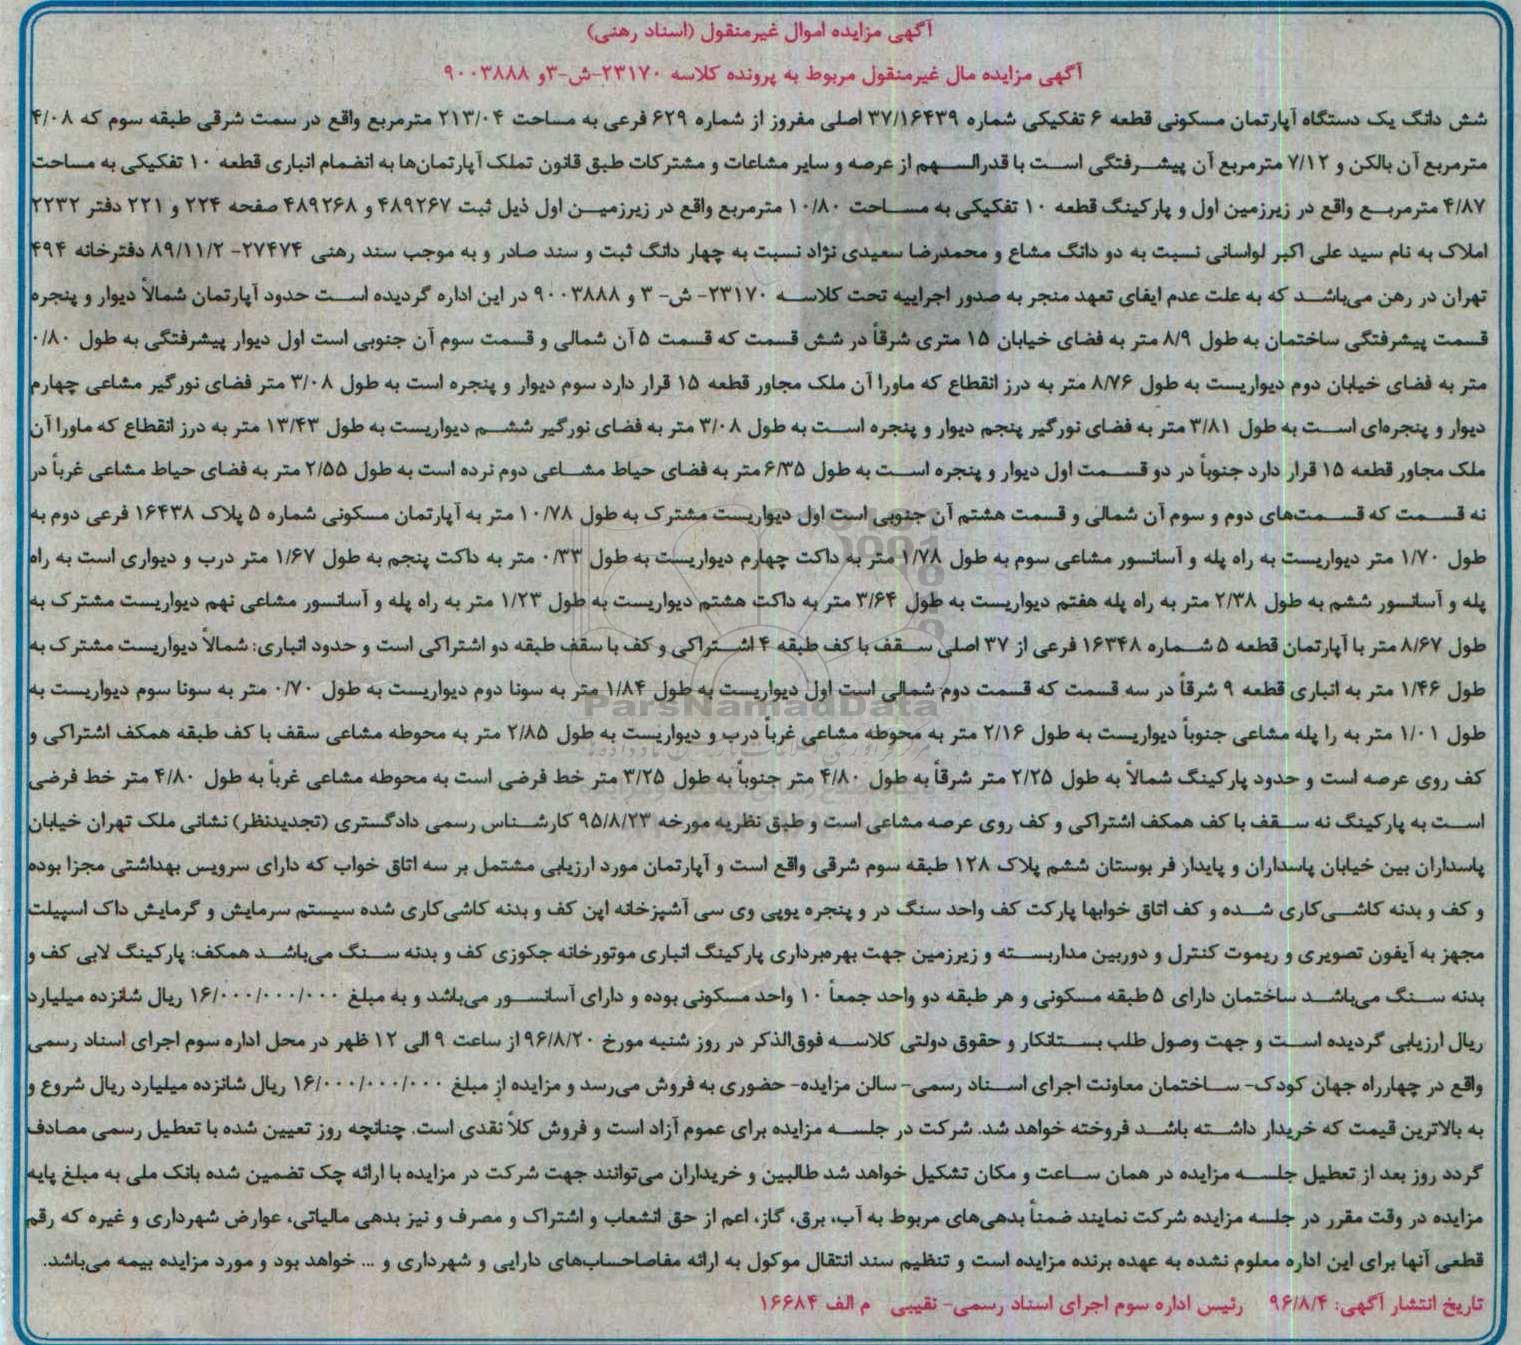 آگهی مزایده اموال غیرمنقول (اسناد رهنی)
آگهی مزایده مال غیرمنقول مربوط به پرونده کلاسه ۲۳۱۷۰-ش-۳و ۹۰۰۳۸۸۸
شش دانگ یک دستگاه آپارتمان مسکونی قطعه ۶ تفکیکی شماره ۳۷/۱۶۴۳۹ اصلی مفروز از شماره ۶۲۹ فرعی به مساحت ۲۱۳/۰۴ مترمربع واقع در سمت شرقی طبقه سوم که ۴/۰۸
مترمربع آن بالکن و ۷/۱۲ مترمربع آن پیشرفتگی است با قدرالسهم از عرصه و سایر مشاعات و مشترکات طبق قانون تملک آپارتمان‌ها به انضمام انباری قطعه ۱۰ تفکیکی به مساحت
۴/۸۷ مترمربع واقع در زیرزمین اول و پارکینگ قطعه ۱۰ تفکیکی به مساحت ۱۰/۸۰ مترمربع واقع در زیرزمین اول ذیل ثبت ۴۸۹۲۶۷ و ۴۸۹۲۶۸ صفحه ۲۲۴ و ۲۲۱ دفتر ۲۲۳۲
املاک به نام سید علی اکبر لواسانی نسبت به دو دانگ مشاع و محمدرضا سعیدی نژاد نسبت به چهار دانگ ثبت و سند صادر و به موجب سند رهنی ۲۷۴۷۴- ۸۹/۱۱/۲ دفترخانه ۴۹۴
تهران در رهن می‌باشد که به علت عدم ایفای تعهد منجر به صدور اجراییه تحت کلاسه ۲۳۱۷۰- ش- ۳ و ۹۰۰۳۸۸۸ در این اداره گردیده است حدود آپارتمان شمالاً دیوار و پنجره
قسمت پیشرفتگی ساختمان به طول ۸/۹ متر به فضای خیابان ۱۵ متری شرقاً در شش قسمت که قسمت ۵ آن شمالی و قسمت سوم آن جنوبی است اول دیوار پیشرفتگی به طول ۰/۸۰
متر به فضای خیابان دوم دیواریست به طول ۸/۷۶ متر به درز انقطاع که ماورا آن ملک مجاور قطعه ۱۵ قرار دارد سوم دیوار و پنجره است به طول ۳/۰۸ متر فضای نورگیر مشاعی چهارم
دیوار و پنجره‌ای است به طول ۳/۸۱ متر به فضای نورگیر پنجم دیوار و پنجره است به طول ۳/۰۸ متر به فضای نورگیر ششم دیواریست به طول ۱۳/۴۳ متر به درز انقطاع که ماورا آن
ملک مجاور قطعه ۱۵ قرار دارد جنوباً در دو قسمت اول دیوار و پنجره است به طول ۶/۳۵ متر به فضای حیاط مشاعی دوم نرده است به طول ۲/۵۵ متر به فضای حیاط مشاعی غرباً در
نه قسمت که قسمت‌های دوم و سوم آن شمالی و قسمت هشتم آن جنوبی است اول دیواریست مشترک به طول ۱۰/۷۸ متر به آپارتمان مسکونی شماره ۵ پلاک ۱۶۴۳۸ فرعی دوم به
طول ۱/۷۰ متر دیواریست به راه پله و آسانسور مشاعی سوم به طول ۱/۷۸ متر به داکت چهارم دیواریست به طول ۰/۳۳ متر به داکت پنجم به طول ۱/۶۷ متر درب و دیواری است به راه
پله و آسانسور ششم به طول ۲/۳۸ متر به راه پله هفتم دیواریست به طول ۳/۶۴ متر به داکت هشتم دیواریست به طول ۱/۲۳ متر به راه پله و آسانسور مشاعی نهم دیواریست مشترک به
طول ۸/۶۷ متر با آپارتمان قطعه ۵ شماره ۱۶۳۴۸ فرعی از ۳۷ اصلی سقف با کف طبقه ۴ اشتراکی و کف با سقف طبقه دو اشتراکی است و حدود انباری: شمالاً دیواریست مشترک به
طول ۱/۴۶ متر به انباری قطعه ۹ شرقاً در سه قسمت که قسمت دوم شمالی است اول دیواریست به طول ۱/۸۴ متر به سونا دوم دیواریست به طول ۰/۷۰ متر به سونا سوم دیواریست به
طول ۱/۰۱ متر به را پله مشاعی جنوباً دیواریست به طول ۲/۱۶ متر به محوطه مشاعی غرباً درب و دیواریست به طول ۲/۸۵ متر به محوطه مشاعی سقف با کف طبقه همکف اشتراکی و
کف روی عرصه است و حدود پارکینگ شمالاً به طول ۲/۲۵ متر شرقاً به طول ۴/۸۰ متر جنوباً به طول ۳/۲۵ متر خط فرضی است به محوطه مشاعی غرباً به طول ۴/۸۰ متر خط فرضی
است به پارکینگ نه سقف با کف همکف اشتراکی و کف روی عرصه مشاعی است و طبق نظریه مورخه ۹۵/۸/۲۳ کارشناس رسمی دادگستری (تجدیدنظر) نشانی ملک تهران خیابان
پاسداران بین خیابان پاسداران و پایدار فر بوستان ششم پلاک ۱۲۸ طبقه سوم شرقی واقع است و آپارتمان مورد ارزیابی مشتمل بر سه اتاق خواب که دارای سرویس بهداشتی مجزا بوده
و کف و بدنه کاشی‌کاری شده و کف اتاق خوابها پارکت کف واحد سنگ در و پنجره یوپی وی سی آشپزخانه اپن کف و بدنه کاشی‌کاری شده سیستم سرمایش و گرمایش داک اسپیلت
مجهز به آیفون تصویری و ریموت کنترل و دوربین مداربسته و زیرزمین جهت بهره‌برداری پارکینگ انباری موتورخانه جکوزی کف و بدنه سنگ می‌باشد همکف: پارکینگ لابی کف و
بدنه سنگ می‌باشد ساختمان دارای ۵ طبقه مسکونی و هر طبقه دو واحد جمعاً ۱۰ واحد مسکونی بوده و دارای آسانسور می‌باشد و به مبلغ ۱۶/۰۰۰/۰۰۰/۰۰۰ ریال شانزده میلیارد
ریال ارزیابی گردیده است و جهت وصول طلب بستانکار و حقوق دولتی کلاسه فوق‌الذکر در روز شنبه مورخ ۹۶/۸/۲۰ از ساعت ۹ الی ۱۲ ظهر در محل اداره سوم اجرای اسناد رسمی
واقع در چهارراه جهان کودک- ساختمان معاونت اجرای اسناد رسمی- سالن مزایده- حضوری به فروش می‌رسد و مزایده از مبلغ ۱۶/۰۰۰/۰۰۰/۰۰۰ ریال شانزده میلیارد ریال شروع و
به بالاترین قیمت که خریدار داشته باشد فروخته خواهد شد. شرکت در جلسه مزایده برای عموم آزاد است و فروش کلاً نقدی است. چنانچه روز تعیین شده با تعطیل رسمی مصادف
گردد روز بعد از تعطیل جلسه مزایده در همان ساعت و مکان تشکیل خواهد شد طالبین و خریداران می‌توانند جهت شرکت در مزایده با ارائه چک تضمین شده بانک ملی به مبلغ پایه
مزایده در وقت مقرر در جلسه مزایده شرکت نمایند ضمناً بدهی‌های مربوط به آب، برق، گاز، اعم از حق انشعاب و اشتراک و مصرف و نیز بدهی مالیاتی، عوارض شهرداری و غیره که رقم
قطعی آنها برای این اداره معلوم نشده به عهده برنده مزایده است و تنظیم سند انتقال موکول به ارائه مفاصاحساب‌های دارایی و شهرداری و ... خواهد بود و مورد مزایده بیمه می‌باشد.
تاریخ انتشار آگهی: ۹۶/۸/۴ رئیس اداره سوم اجرای اسناد رسمی- نقیبی م الف ۱۶۶۸۴
ParsNamadData